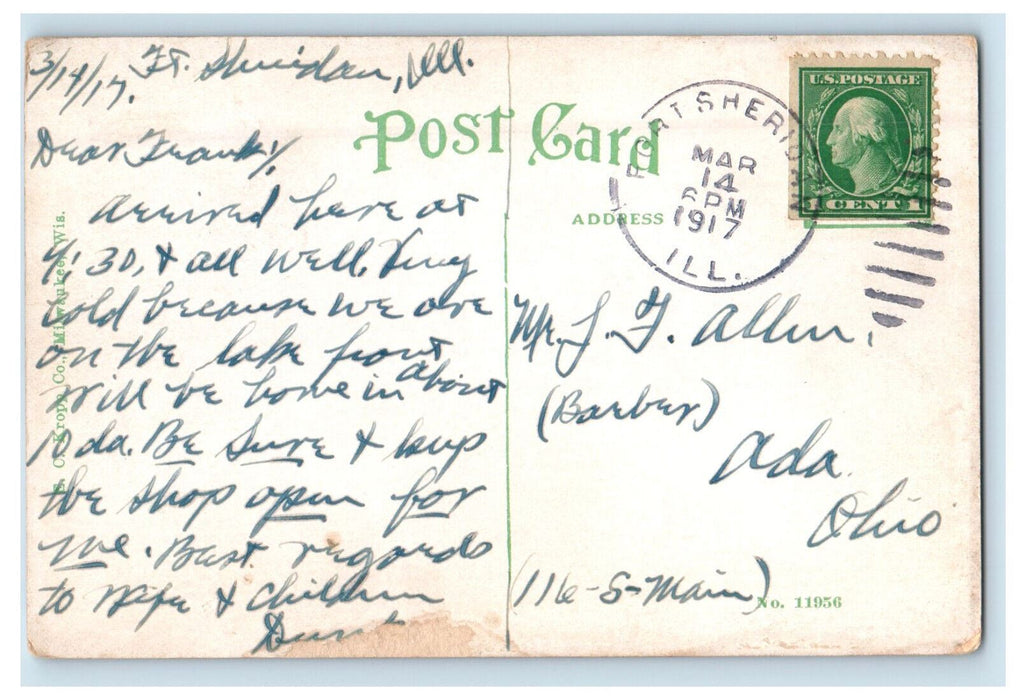 3/14/17. Ft. Sheridan, Ill.
Dear Frank;
Arrived here at
4:30, & all well. Very
cold because we are
on the lake front
Will be home in about
10 da. Be sure & keep
the shop open for
me. Best regards
to wife & children
POST CARD
ADDRESS
U.S. POSTAGE
1 CENT 1
FORT SHERIDAN
MAR
14
6 PM
1917
ILL.
Mr. J. F. Allen.
(Barber)
Ada.
Ohio
(116-S-Main)
No. 11956
E. C. Kropp Co., Milwaukee, Wis.